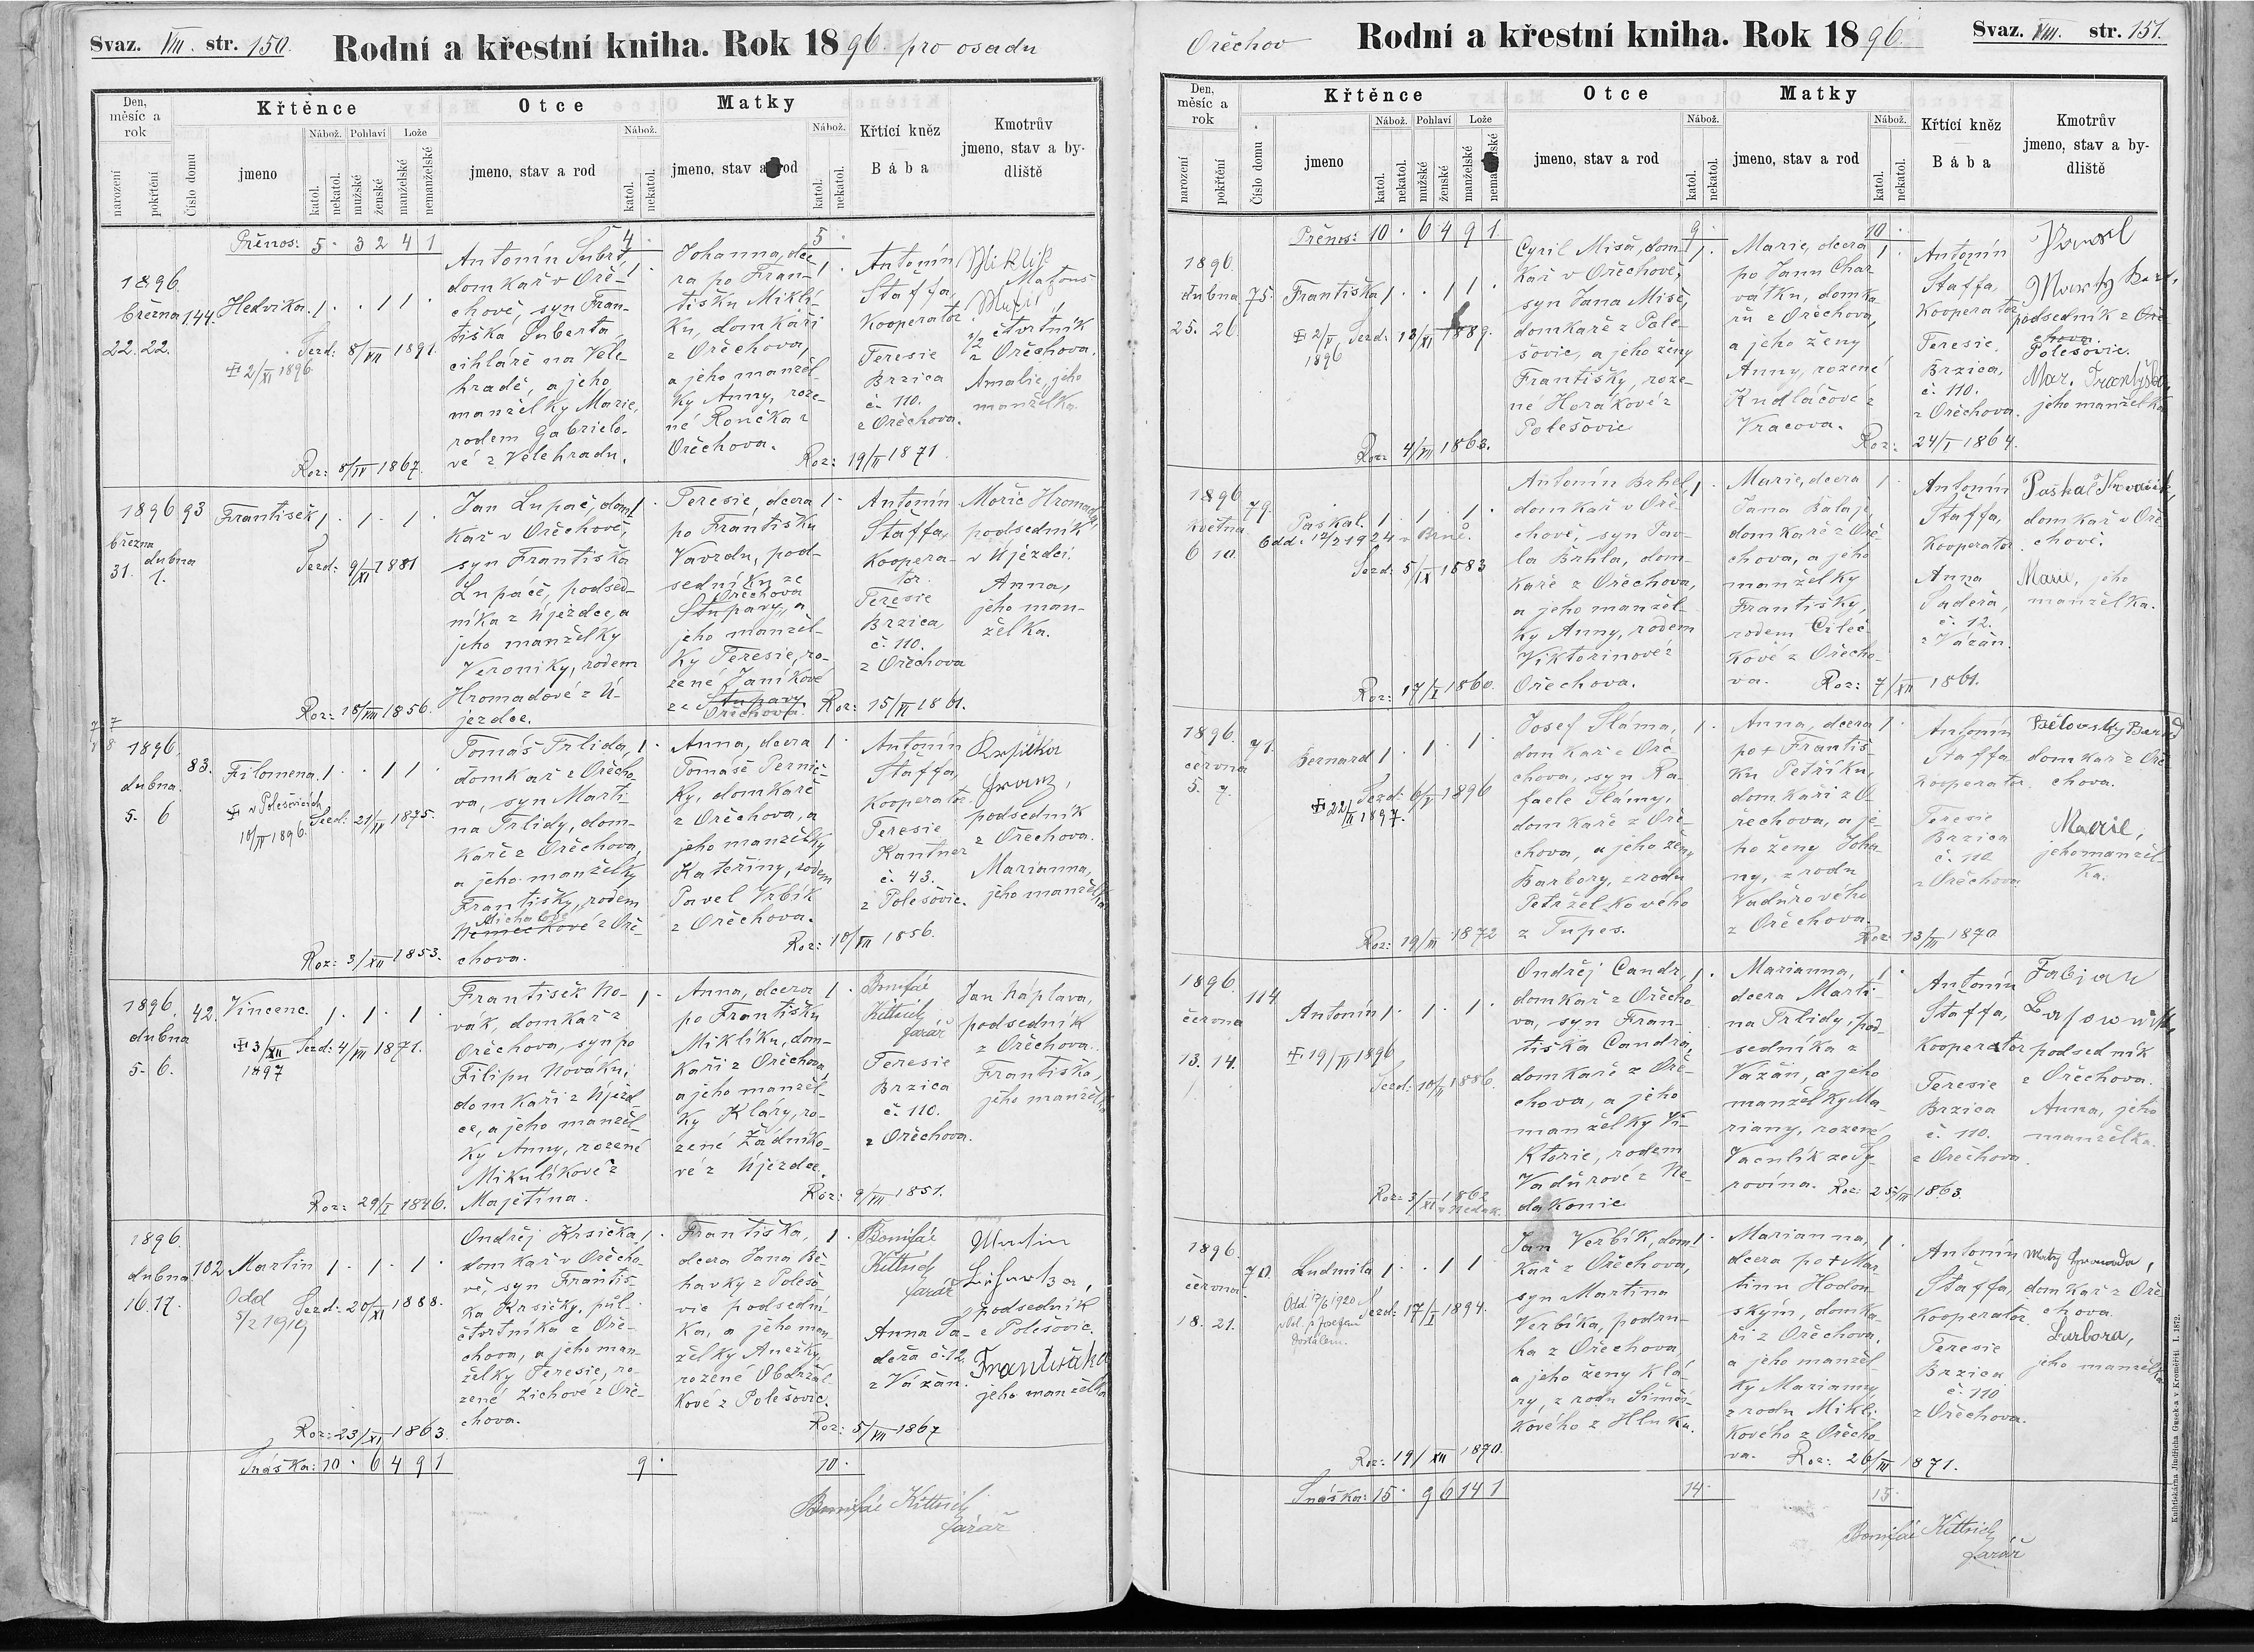 Svaz. VIII. str. 150.
Rodní a křestní kniha. Rok 1896. pro osadu
Den, měsíc a rok
narození
pokřtění
Číslo domu
Křtěnce
jmeno
Nábož.
katol.
nekatol.
Pohlaví
mužské
ženské
Lože
manželské
nemanželské
Otce
jmeno, stav a rod
Nábož.
katol.
nekatol.
Matky
jmeno, stav a rod
Nábož.
katol.
nekatol.
Křtící kněz
Bába
Kmotrův
jmeno, stav a by-
dliště
Přenos: 5 · 3 2 4 1
4 ·
5 ·
1896.
března
22. 22.
144.
Hedvika. 1 · · 1 1 ·
2/XI 1896
Sezd: 8/VII 1891.
Antonín Šubrt,
domkař v Oře-
chově, syn Fran-
tiška Šuberta
cihláře na Vele
hradě, a jeho
manželky Marie,
rodem Gabrielo-
vé z Velehradu.
Roz: 8/IV 1867.
1 ·
Johanna, dce
ra po Fran-
tišku Miklí-
ku, domkáři
z Ořechova,
a jeho manžel-
ky Anny, roze-
né Rončka z
Ořechova.
Roz: 19/II 1871
1 ·
Antonín
Staffa,
Kooperator.
Teresie
Brzica
č. 110.
z Ořechova.
Miklík
Matouš
1/2 čtvrtník
z Ořechova.
Amalie, jeho
manželka.
1896
března
31. dubna
1.
93
František 1 · 1 · 1 ·
Sezd: 9/XI 1881
Jan Lupač, dom-
kař v Ořechově,
syn Františka
Lupáče, podsed-
níka z Újezdce, a
jeho manželky
Veroniky, rodem
Hromadové z Ú-
jezdce.
Roz: 18/VIII 1856.
1 ·
Teresie, dcera
po Františku
Vavrdu, pod-
sedníku ze
Ořechova
Stupavy, a
jeho manžel-
ky Teresie, ro-
zené Janíkové
ze Stupavy
Ořechova.
Roz: 15/VI 1861.
1 ·
Antonín
Staffa,
Koopera-
tor.
Teresie
Brzica,
č. 110.
z Ořechova
Mořic Hromada,
podsedník
v Újezdci
Anna,
jeho man-
želka.
1896.
dubna.
5. 6
83.
Filomena. 1 · · 1 1 ·
v Polešovicích
10/IV 1896.
Sezd: 21/IV 1875.
Tomáš Trlida,
domkař z Ořecho-
va, syn Marti-
na Trlidy, dom-
kaře z Ořechova,
a jeho manželky
Františky, rodem
Michalové
Němečkové z Oře-
chova.
Roz: 3/XII 1853.
1 ·
Anna, dcera
Tomáše Pernič-
ky, domkaře
z Ořechova, a
jeho manželky
Kateřiny, rodem
Pavel Vrbík
z Ořechova.
Roz: 10/VII 1856.
1 ·
Antonín
Staffa,
Kooperator.
Teresie
Kantner
č. 43.
z Polešovic.
Franz,
podsedník
z Ořechova.
Marianna,
jeho manželka
1896.
dubna
5. 6.
42.
Vincenc. 1 · 1 · 1 ·
3/XII 1897
Sezd: 4/VII 1871.
František No-
vák, domkař z
Ořechova, syn po
Filipu Nováku,
domkáři z Újezd-
ce, a jeho manžel-
ky Anny, rozené
Mikulíkové z
Majetína.
Roz: 29/I 1846.
1 ·
Anna, dcera
po Františku
Miklíku, dom-
káři z Ořechova,
a jeho manžel-
ky Kláry, ro-
zené Žádníko-
vé z Újezdce.
Roz: 9/VII 1851.
1 ·
Bonifác
Kittrich
farář
Teresie
Brzica
č. 110.
z Ořechova.
Jan Náplava,
podsedník
z Ořechova.
Františka,
jeho manželka
1896.
dubna
16. 17.
102
Martin 1 · 1 · 1 ·
Odd
5/2 1919
Sezd: 20/XI 1888.
Ondřej Krsička,
domkař v Ořecho-
vě, syn Františ-
ka Krsičky, půl-
čtvrtníka z Oře-
chova, a jeho man-
želky Teresie, ro-
zené Zichové z Oře-
chova.
Roz: 23/XI 1863.
1 ·
Františka,
dcera Jana Bě-
havky z Polešo-
vic podsední-
ka, a jeho man
želky Anežky,
rozené Obdržál-
kové z Polešovic.
Roz: 5/VII 1867
1 ·
Bonifác
Kittrich
farář
Anna Sa-
deřa č. 12.
z Vázan.
Martin
podsedník
z Polešovic.
Františka
jeho manželka
Snáška: 10 · 6 4 9 1
9 ·
10 ·
Bonifác Kittrich
farář
Ořechov
Rodní a křestní kniha. Rok 1896.
Svaz. VIII. str. 151.
Den, měsíc a rok
narození
pokřtění
Číslo domu
Křtěnce
jmeno
Nábož.
katol.
nekatol.
Pohlaví
mužské
ženské
Lože
manželské
nemanželské
Otce
jmeno, stav a rod
Nábož.
katol.
nekatol.
Matky
jmeno, stav a rod
Nábož.
katol.
nekatol.
Křtící kněz
Bába
Kmotrův
jmeno, stav a by-
dliště
Přenos: 10 · 6 4 9 1
9 ·
10 ·
1896.
dubna
25. 26.
75.
Františka 1 · · 1 1 ·
2/V 1896
Sezd: 18/XI 1889.
Cyril Miša, dom-
kař v Ořechově,
syn Jana Miše,
domkaře z Pole-
šovic, a jeho ženy
Františky, roze-
né Horákové z
Polešovic
Roz: 4/VII 1863.
1 ·
Marie, dcera
po Janu Char-
vátku, domka-
řu z Ořechova,
a jeho ženy
Anny, rozené
Kudláčové z
Vracova.
Roz: 24/I 1864.
1 ·
Antonín
Staffa,
Kooperator
Teresie.
Brzica,
č. 110.
z Ořechova.
podsedník z Oře
chova.
Polešovic.
jeho manželka
1896
května
6 10.
79.
Paskal. 1 · 1 · 1 ·
Odd: 12/2 1924 v Brně.
Sezd: 5/IX 1883
Antonín Brhel,
domkař v Oře-
chově, syn Pav-
la Brhla, dom-
kaře z Ořechova,
a jeho manžel-
ky Anny, rodem
Viktorinové z
Ořechova.
Roz: 17/I 1860.
1 ·
Marie, dcera
Jana Balaje,
domkaře z Oře-
chova, a jeho
manželky
Františky,
rodem Cileč-
kové z Ořecho-
va.
Roz: 7/XII 1861.
1 ·
Antonín
Staffa,
Kooperator.
Anna
Sadeřa,
č. 12.
z Vázan.
domkař v Oře-
chově.
Marie, jeho
manželka.
1896.
června
5. 7.
71.
Bernard 1 · 1 · 1 ·
22/II 1897.
Sezd: 6/V 1896
Josef Sláma,
domkař z Oře-
chova, syn Ra-
faele Slámy,
domkaře z Oře-
chova, a jeho ženy
Barbory, z rodu
Petrželkového
z Tupes.
Roz: 19/III 1872
1 ·
Anna, dcera
po + Františ-
ku Petříku,
domkáři z O-
řechova, a je-
ho ženy Joha-
ny, z rodu
Vaďurového
z Ořechova.
Roz: 13/III 1870
1 ·
Antonín
Staffa
Kooperator.
Teresie
Brzica
č. 110
z Ořechova
domkař z Oře-
chova.
Marie,
jeho manžel-
ka.
1896.
června
13. 14.
114
Antonín 1 · 1 · 1 ·
19/VI 1896
Sezd: 10/II 1886.
Ondřej Candr,
domkař z Ořecho-
va, syn Fran-
tiška Candra,
domkaře z Oře-
chova, a jeho
manželky Vi-
ktorie, rodem
Vaďurové z Ne-
dakonic
Roz: 3/XI 1862
v Nedak.
1 ·
Marianna,
dcera Marti-
na Trlidy, pod-
sedníka z
Vázan, a jeho
manželky Ma-
riany, rozené
Vaculík ze Sy-
rovína.
Roz: 25/III 1863.
1 ·
Antonín
Staffa,
Kooperator
Teresie
Brzica
č. 110.
z Ořechova
Fabian
podsedník
z Ořechova.
Anna, jeho
manželka.
1896.
června
18. 21.
70.
Ludmila 1 · · 1 1 ·
Odd. 17/6 1920
s Josefem
Dostálem.
Sezd: 17/I 1894.
Jan Verbík, dom-
kař z Ořechova,
syn Martina
Verbíka, podru-
ha z Ořechova,
a jeho ženy Klá-
ry, z rodu Šimči-
kového z Hluku.
Roz: 19/XII 1870.
1 ·
Marianna,
dcera po + Mar-
tinu Hodon-
ským, domka-
ři z Ořechova,
a jeho manžel
ky Marianny
z rodu Miklí-
kového z Ořecho-
va.
Roz: 26/III 1871.
1 ·
Antonín
Staffa,
Kooperator.
Teresie
Brzica
č. 110
z Ořechova.
domkař z Oře-
chova.
Barbora,
jeho manželka
Snáška: 15 · 9 6 14 1
14 ·
15 ·
Bonifác Kittrich
farář
Knihtiskárna Jindřicha Gusek-a v Kroměříži. I. 1872.